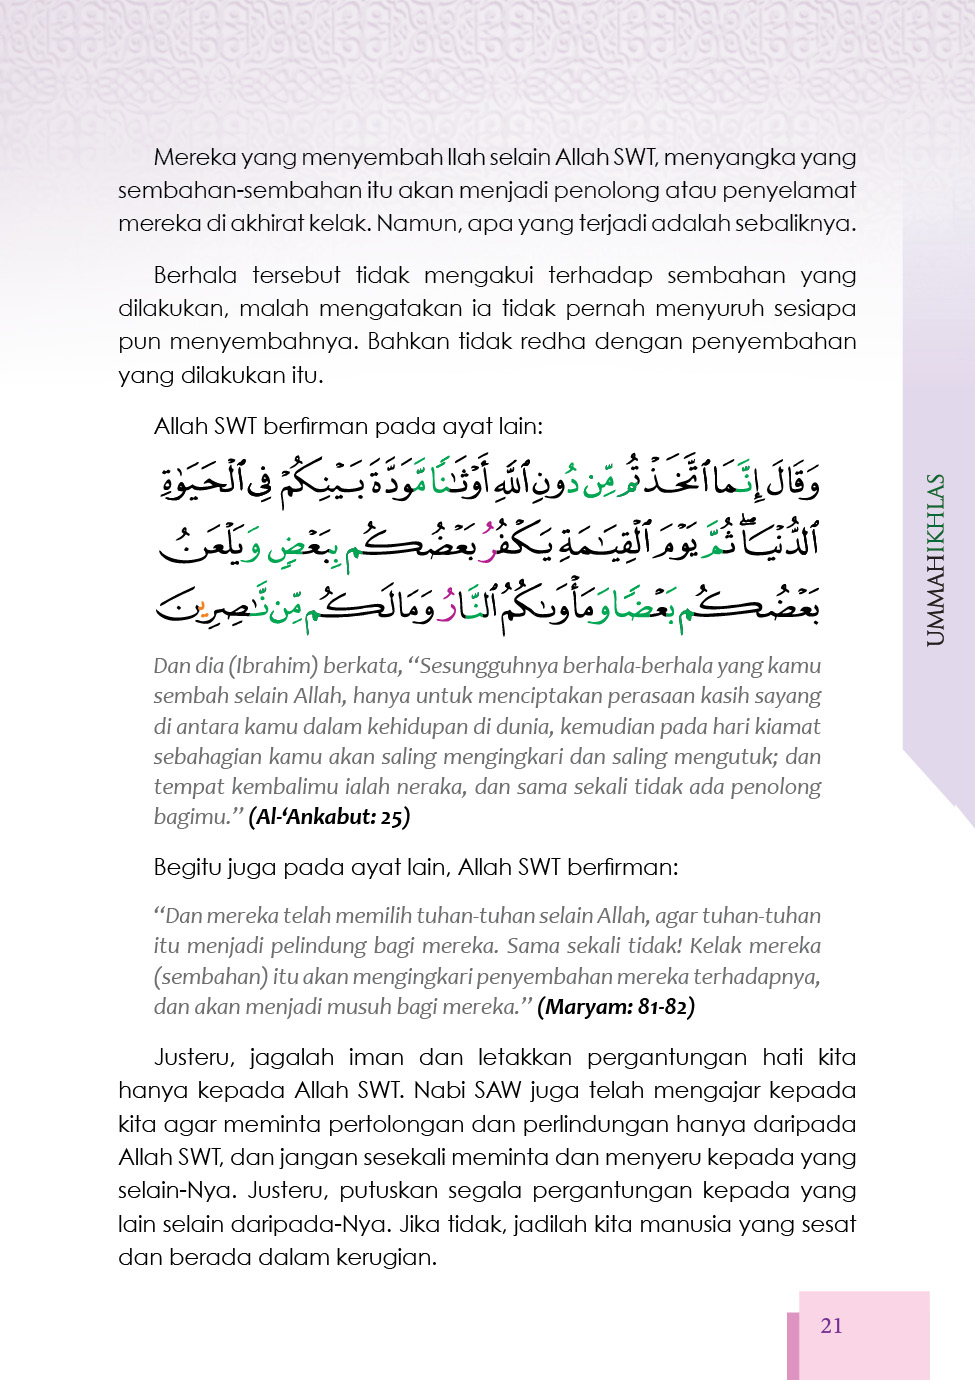 Mereka yang menyembah Ilah selain Allah SWT, menyangka yang
sembahan-sembahan itu akan menjadi penolong atau penyelamat
mereka di akhirat kelak. Namun, apa yang terjadi adalah sebaliknya.
Berhala tersebut tidak mengakui terhadap sembahan yang
dilakukan, malah mengatakan ia tidak pernah menyuruh sesiapa
pun menyembahnya. Bahkan tidak redha dengan penyembahan
yang dilakukan itu.
Allah SWT berfirman pada ayat lain:
وَقَالَ إِنَّمَا ٱتَّخَذۡتُم مِّن دُونِ ٱللَّهِ أَوۡثَٰنٗا مَّوَدَّةَ بَيۡنِكُمۡ فِي ٱلۡحَيَوٰةِ
ٱلدُّنۡيَاۖ ثُمَّ يَوۡمَ ٱلۡقِيَٰمَةِ يَكۡفُرُ بَعۡضُكُم بِبَعۡضٖ وَيَلۡعَنُ
بَعۡضُكُم بَعۡضٗا وَمَأۡوَىٰكُمُ ٱلنَّارُ وَمَا لَكُم مِّن نَّٰصِرِينَ
Dan dia (Ibrahim) berkata, “Sesungguhnya berhala-berhala yang kamu
sembah selain Allah, hanya untuk menciptakan perasaan kasih sayang
di antara kamu dalam kehidupan di dunia, kemudian pada hari kiamat
sebahagian kamu akan saling mengingkari dan saling mengutuk; dan
tempat kembalimu ialah neraka, dan sama sekali tidak ada penolong
bagimu.” (Al-‘Ankabut: 25)
Begitu juga pada ayat lain, Allah SWT berfirman:
“Dan mereka telah memilih tuhan-tuhan selain Allah, agar tuhan-tuhan
itu menjadi pelindung bagi mereka. Sama sekali tidak! Kelak mereka
(sembahan) itu akan mengingkari penyembahan mereka terhadapnya,
dan akan menjadi musuh bagi mereka.” (Maryam: 81-82)
Justeru, jagalah iman dan letakkan pergantungan hati kita
hanya kepada Allah SWT. Nabi SAW juga telah mengajar kepada
kita agar meminta pertolongan dan perlindungan hanya daripada
Allah SWT, dan jangan sesekali meminta dan menyeru kepada yang
selain-Nya. Justeru, putuskan segala pergantungan kepada yang
lain selain daripada-Nya. Jika tidak, jadilah kita manusia yang sesat
dan berada dalam kerugian.
UMMAHIKHLAS
21